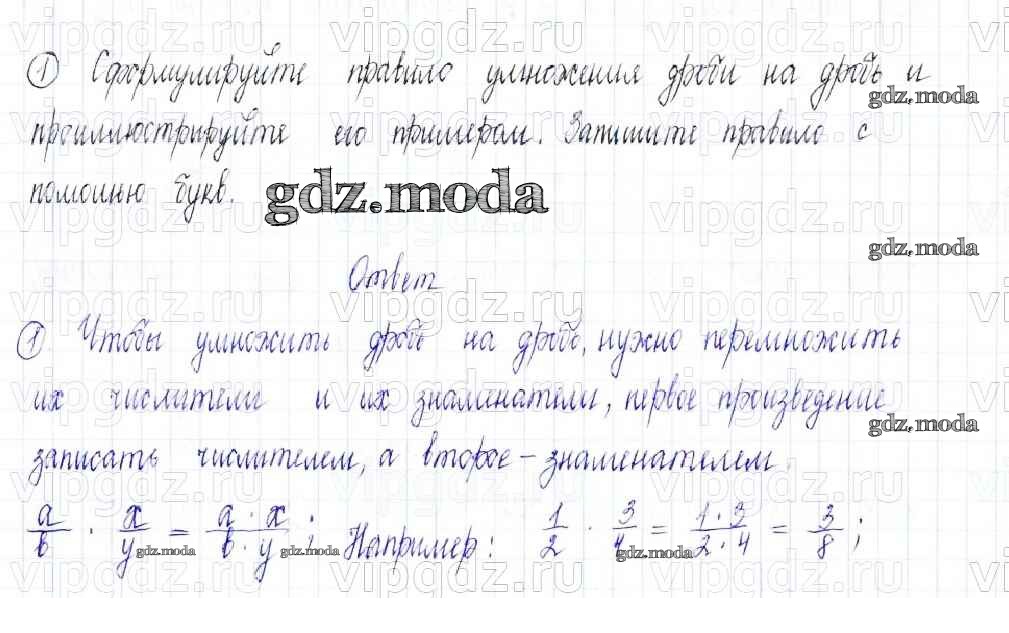 ① Сформулируйте правило умножения дроби на дробь и
проиллюстрируйте его примером. Запишите правило с
помощью букв.
gdz.moda
Ответ
① Чтобы умножить дробь на дробь, нужно перемножить
их числители и их знаменатели, первое произведение
записать числителем, а второе – знаменателем.
a/b · x/y = a · x / b · y ; Например: 1/2 · 3/4 = 1 · 3 / 2 · 4 = 3/8 ;
gdz.moda
gdz.moda
gdz.moda
gdz.moda
gdz.moda
gdz.moda
gdz.moda
vipgdz.ru